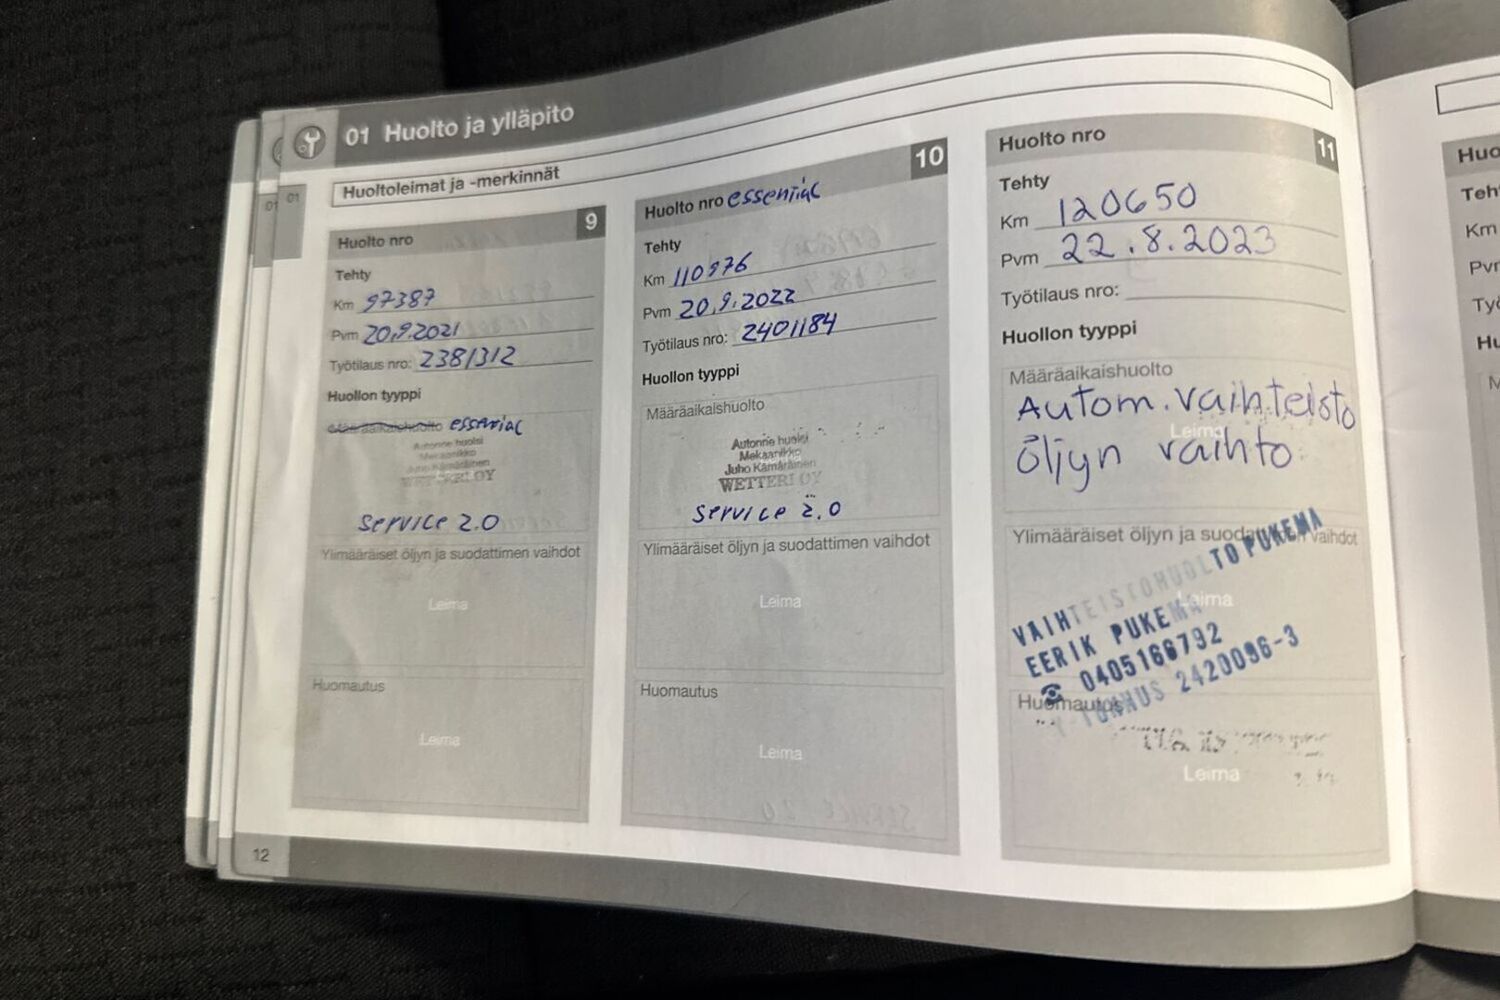 01 Huolto ja ylläpito
01
01
Huoltoleimat ja -merkinnät
Huolto nro 9
Tehty
Km 97387
Pvm 20.9.2021
Työtilaus nro: 2381312
Huollon tyyppi
Määräaikaishuolto essential
Autonne huolsi
Mekaanikko
Juho Kämäräinen
WETTERI OY
service 2.0
Ylimääräiset öljyn ja suodattimen vaihdot
Leima
Huomautus
Leima
12
Huolto nro essential 10
Tehty
Km 110976
Pvm 20.9.2022
Työtilaus nro: 2401184
Huollon tyyppi
Määräaikaishuolto
Autonne huolsi
Mekaanikko
Juho Kämäräinen
WETTERI OY
service 2.0
Ylimääräiset öljyn ja suodattimen vaihdot
Leima
Huomautus
Leima
Huolto nro 11
Tehty
Km 120650
Pvm 22.8.2023
Työtilaus nro:
Huollon tyyppi
Määräaikaishuolto
Autom. vaihteisto
Leima
öljyn vaihto
Ylimääräiset öljyn ja suodattimen vaihdot
Leima
VAIHTEISTOHUOLTO PUKEMA
EERIK PUKEMA
☎ 0405166792
Y-TUNNUS 2420096-3
Huomautus
Leima
Huo
Teh
Km
Pvm
Työ
Hu
M